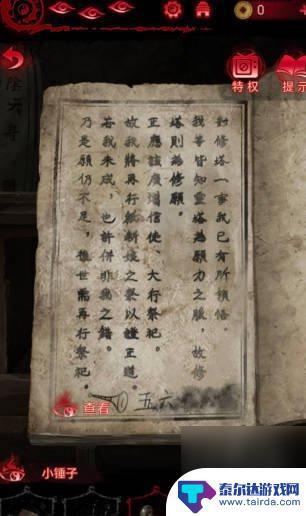 0
特权
提示
對修塔一事我已有所領悟。
我等皆知靈塔為願力之脈，故修
塔則為修願。
正應該廣增信使、大行祭祀。
故我將再行新娘之祭以證王道。
若我未成，也許併非我之錯。
乃是願仍不足，後世需再行祭祀。
五六
查看
小锤子
泰尔达游戏网
www.tairda.com